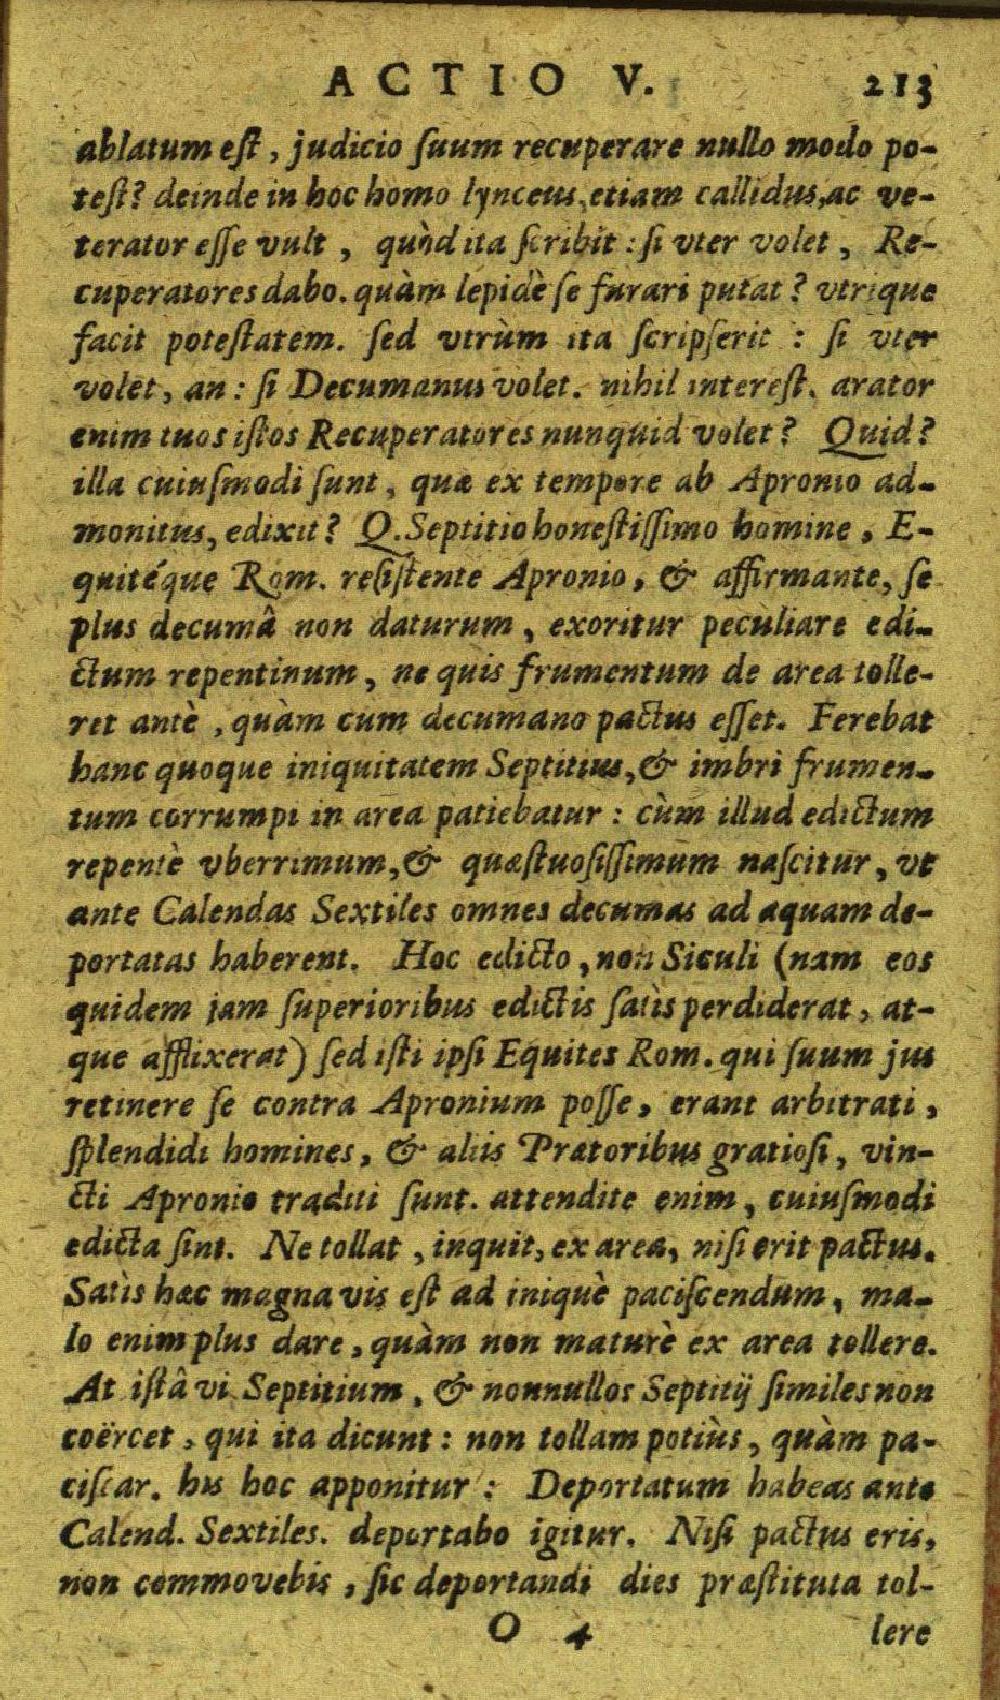 ACTIO V. 213
ablatum eſt, judicio ſuum recuperare nullo modo po-
teſt? deinde in hoc homo lynceus, etiam callidus, ac ve-
terator eſſe vult, quòd ita ſcribit: ſi vter volet, Re-
cuperatores dabo. quàm lepidè ſe furari putat? vtrique
facit poteſtatem. ſed vtrùm ita ſcripſerit: ſi vter
volet, an: ſi Decumanus volet. nihil intereſt. arator
enim tuos iſtos Recuperatores nunquid volet? Quid?
illa cuiuſmodi ſunt, quæ ex tempore ab Apronio ad-
monitus, edixit? Q. Septitio honeſtiſſimo homine, E-
quitéque Rom. reſiſtente Apronio, & affirmante, ſe
plus decumâ non daturum, exoritur peculiare edi-
ctum repentinum, ne quis frumentum de area tolle-
ret antè, quàm cum decumano pactus eſſet. Ferebat
hanc quoque iniquitatem Septitius, & imbri frumen-
tum corrumpi in area patiebatur: cùm illud edictum
repentè vberrimum, & quæſtuoſiſſimum naſcitur, vt
ante Calendas Sextiles omnes decumas ad aquam de-
portatas haberent. Hoc edicto, non Siculi (nam eos
quidem jam ſuperioribus edictis ſatìs perdiderat, at-
que afflixerat) ſed iſti ipſi Equites Rom. qui ſuum jus
retinere ſe contra Apronium poſſe, erant arbitrati,
ſplendidi homines, & aliis Prætoribus gratioſi, vin-
cti Apronio traditi ſunt. attendite enim, cuiuſmodi
edicta ſint. Ne tollat, inquit, ex area, niſi erit pactus.
Satìs hæc magna vis eſt ad iniquè paciſcendum, ma-
lo enim plus dare, quàm non maturè ex area tollere.
At iſtâ vi Septitium, & nonnullos Septitij ſimiles non
coërcet, qui ita dicunt: non tollam potiùs, quàm pa-
ciſcar. his hoc apponitur: Deportatum habeas ante
Calend. Sextiles. deportabo igitur. Niſi pactus eris,
non commovebis, ſic deportandi dies præſtituta tol-
O 4 lere